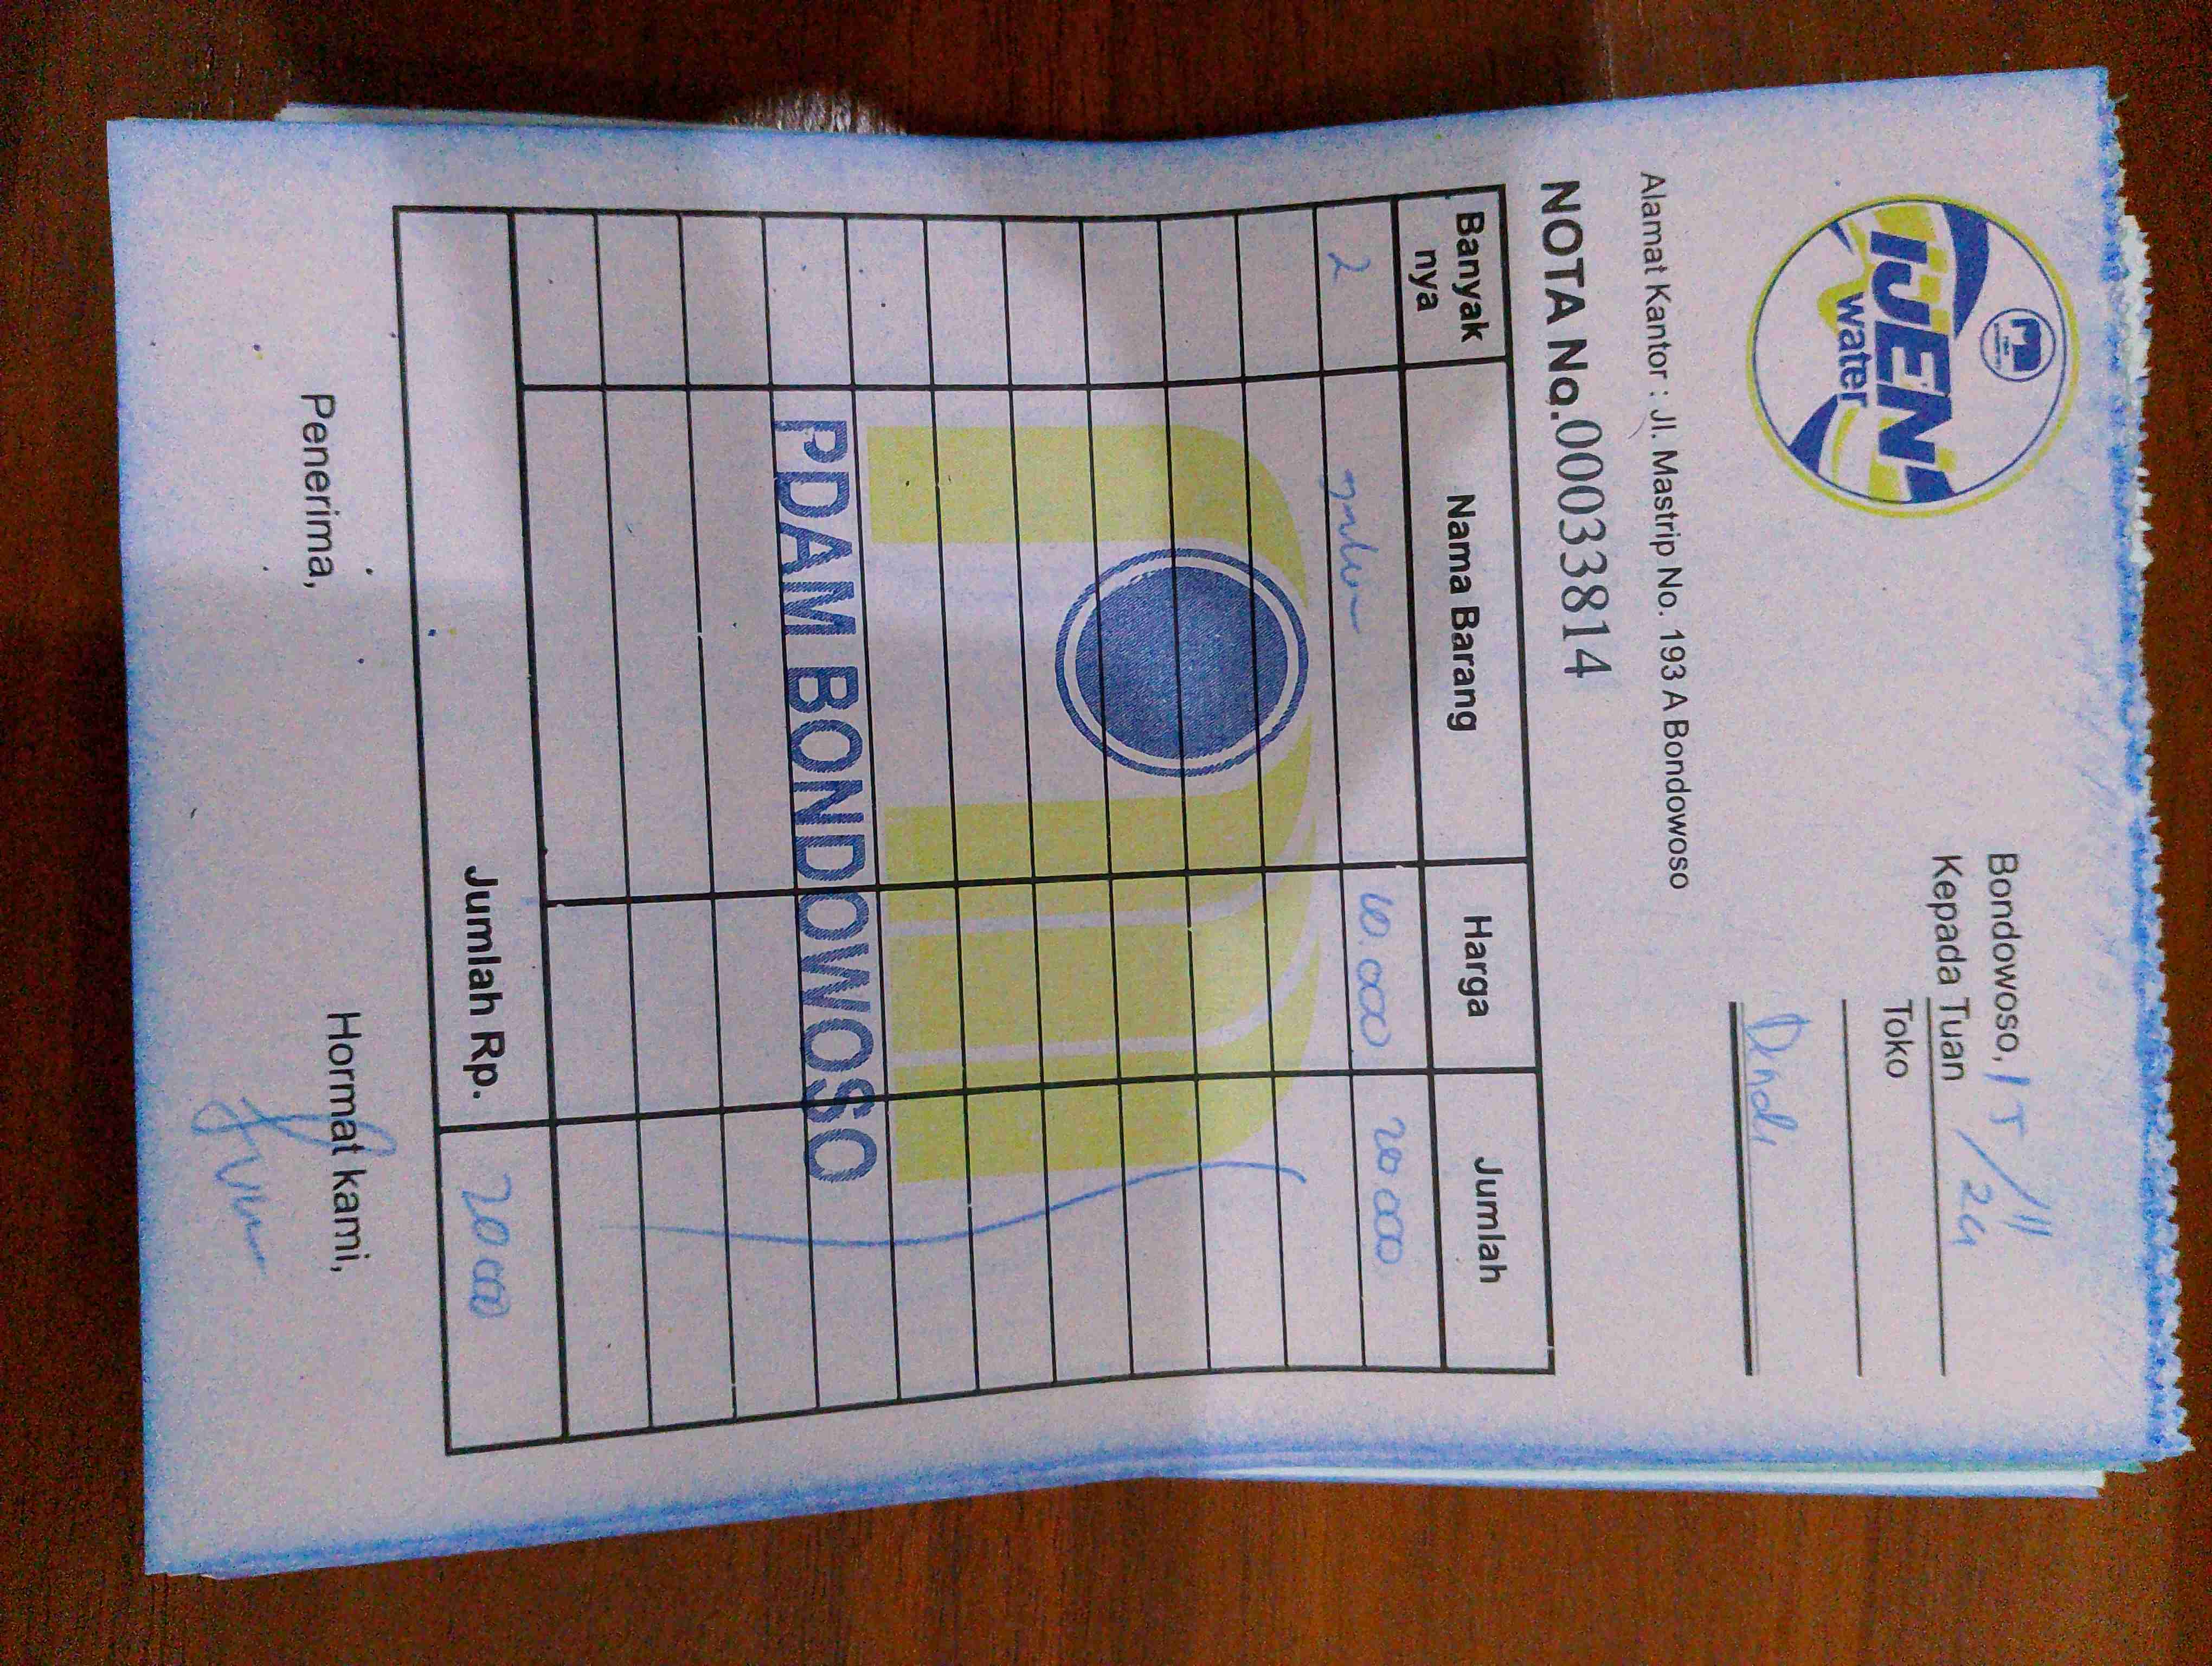 IJEN
water
Bondowoso, 15/11
Kepada Tuan 24
Toko
Dindi
Alamat Kantor : Jl. Mastrip No. 193 A Bondowoso
NOTA No.00033814
Banyak nya Nama Barang Harga Jumlah
2 10.000 20.000
PDAM BONDOWOSO
Jumlah Rp. 20.000
Penerima, Hormat kami,